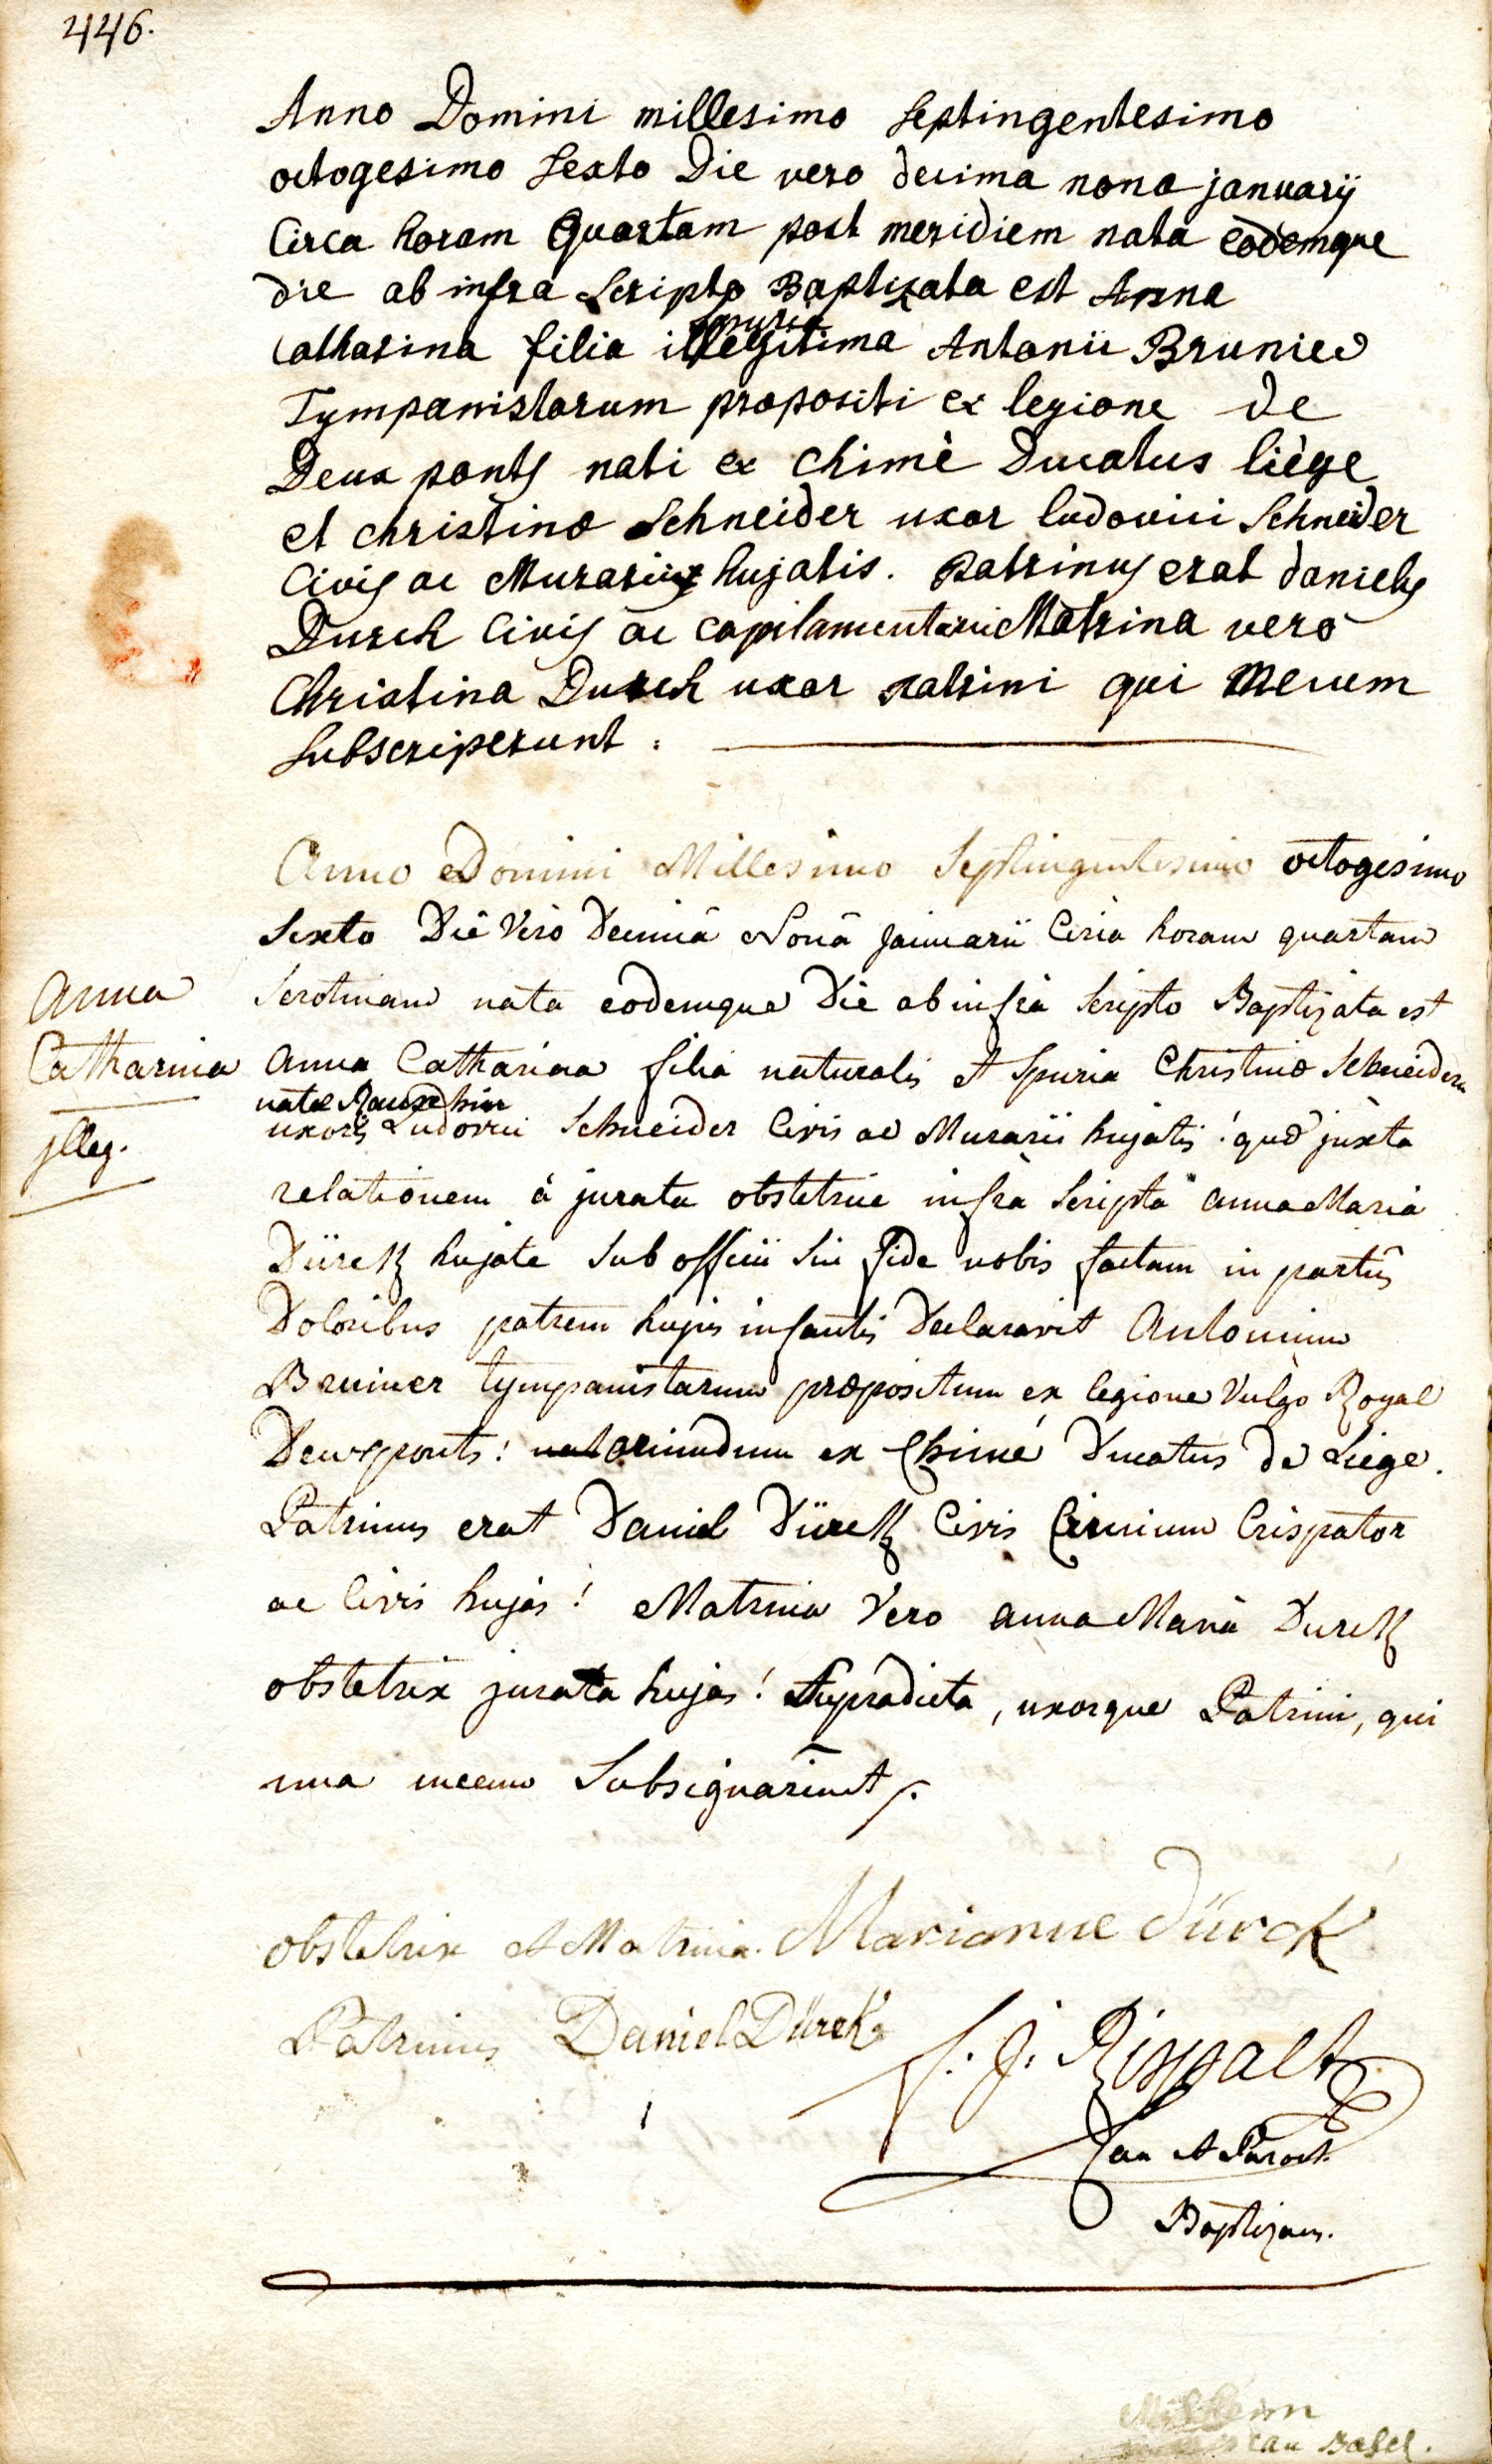 446.
Anno Domini millesimo septingentesimo
octogesimo sexto Die vero decima nona januarij
Circa horam Quartam post meridiem nata eodemque
die ab infra scripto Baptizata est Anna
Catharina filia illegitima Antonii Brunier
spuria
Tympanistarum propositi ex legione de
Deux ponts nati ex Chimè Ducatus liège
et christinæ Schneider uxor ludovici Schneider
Civis ac Murarii hujatis. Patrinus erat daniels
Dursch Civis ac capilamentarii Matrina vero
Christina Dursch uxor patrini qui Mecum
subscriperunt :
Anno Domini Millesimo Septingentesimo octogesimo
Sexto Die Vero Decimâ Nonâ Januarii Circa horam quartam
Serotinam nata eodemque Die ab infrà Scripto Baptizata est
Anna Catharina filia naturalis et Spuria Christinæ Schneider
natæ
uxoris Ludovici Schneider Civis ac Murarii hujatis! quæ juxta
relationem à jurata obstetrice infrà Scripta Anna Maria
Dürck hujate Sub officii Sui fide nobis factam in partûs
Doloribus patrem hujus infantis Declaravit Antonium
Bruiner tympanistarum præpositum ex legione Vulgo Royal
Deuxponts! oriundum ex Chimé Ducatus de Liege.
Patrinus erat Daniel Dürck Civis Crinium Crispator
ac Civis hujas! Matrina Vero Anna Maria Durck
obstetrix jurata hujas! Supradicta, uxorque Patrini, qui
una mecum Subsignarunt
Anna
Catharina
jlleg.
obstetrix et Matrina. Marianne Dürck
Patrinus Daniel Dürck
f. J. Rippalt
Can et Paroch.
Baptizans.